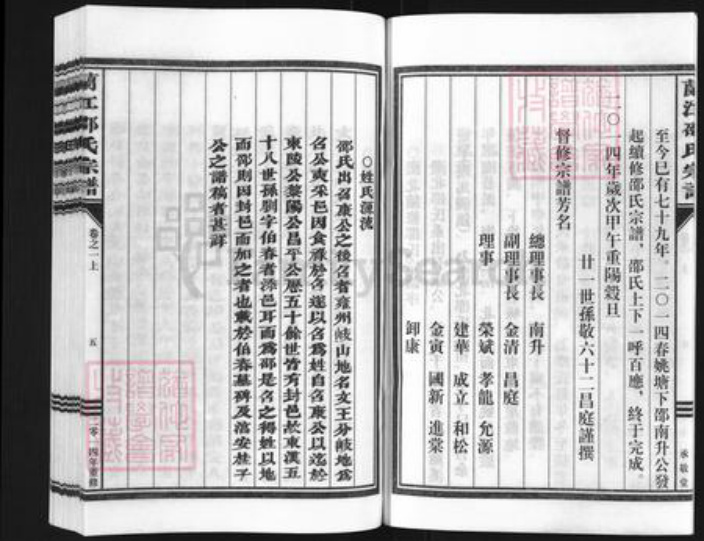 至今已有七十九年。二〇一四春姚塘下邵南升公發
起續修邵氏宗譜，邵氏上下一呼百應，終于完成。
二〇一四年歲次甲午重陽穀旦
廿一世孫敬六十二昌庭謹撰
督修宗譜芳名
總理事長 南升
副理事長 金清 昌庭
理事 榮斌 孝龍 允源
建華 成立 和松
金寅 國新 進棠
卸康
承敬堂
蘭江邵氏宗譜
卷之一上
五
二零一四年重修
〇姓氏源流
邵氏出召康公之後召者雍州岐山地名文王分岐地為
召公奭采邑因食祿於召遂以召為姓自召康公以迄於
東陵公黎陽公昌平公歷五十餘世皆有封邑故東漢五
十八世孫馴字伯春者添邑耳而為邵是召之得姓以地
而邵則因封邑而加之者也載於伯春墓碑及滄安桂子
公之譜稿者甚詳